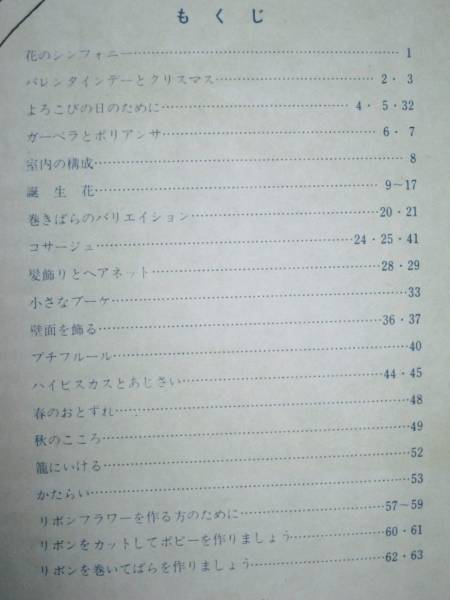 もくじ
花のシンフォニー……1
バレンタインデーとクリスマス……2・3
よろこびの日のために……4・5・32
ガーベラとポリアンサ……6・7
室内の構成……8
誕生花……9~17
巻きばらのバリエイション……20・21
コサージュ……24・25・41
髪飾りとヘアネット……28・29
小さなブーケ……33
壁面を飾る……36・37
プチフルール……40
ハイビスカスとあじさい……44・45
春のおとずれ……48
秋のこころ……49
籠にいける……52
かたらい……53
リボンフラワーを作る方のために……57~59
リボンをカットしてポピーを作りましょう……60・61
リボンを巻いてばらを作りましょう……62・63